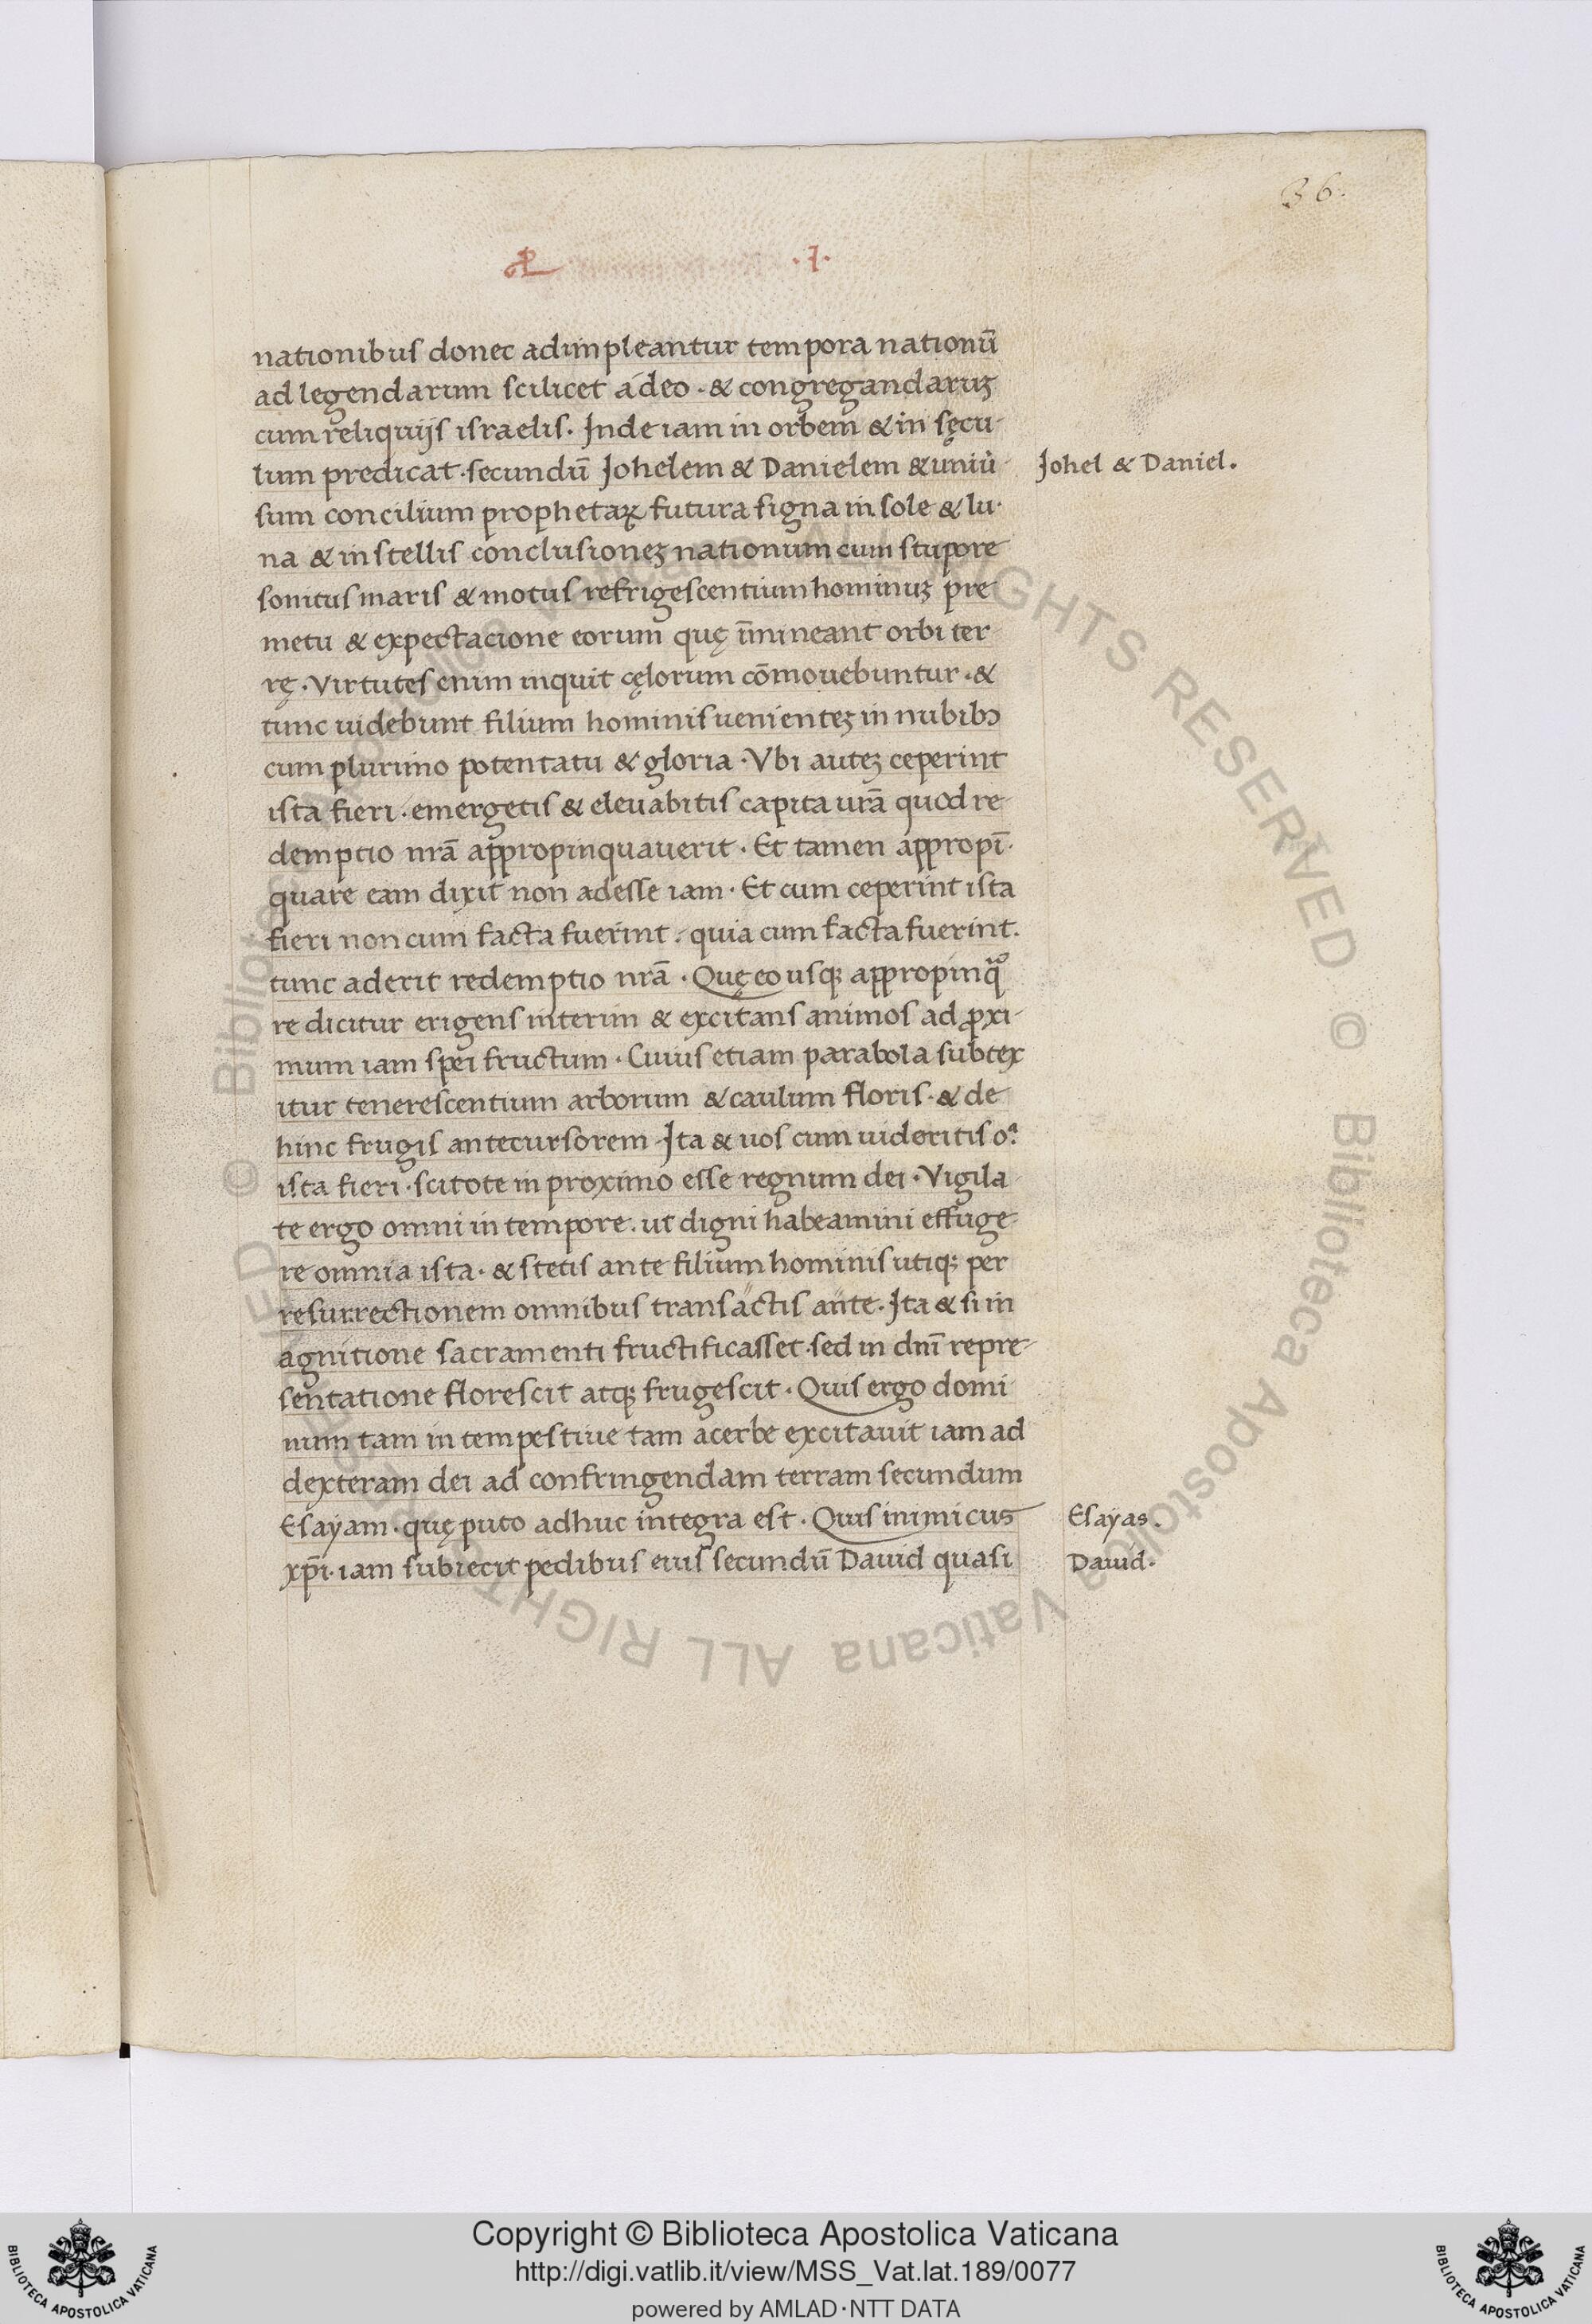 36.
·I·
nationibus donec adimpleantur tempora nationũ
ad legendarum scilicet a deo · & congregandaruꝫ
cum reliquijs israelis. Inde iam in orbem & in sęcu-
lum predicat · secundũ Johelem & Danielem & uniũ-
Johel & Daniel.
sum concilium prophetaꝝ futura signa in sole & lu-
na & in stellis conclusioneꝫ nationum cum stupore
sonitus maris & motus refrigescentium hominuꝫ pre
metu & expectacione eorum quę ĩmineant orbi ter-
rę · Virtutes enim inquit cęlorum cõmouebuntur · &
tunc uidebunt filium hominis uenienteꝫ in nubibꝫ
cum plurimo potentatu & gloria · Vbi auteꝫ ceperint
ista fieri · emergetis & eleuabitis capita ur̃a quod re-
demptio nr̃a appropinquauerit · Et tamen appropĩ-
quare eam dixit non adesse iam · Et cum ceperint ista
fieri non cum facta fuerint · quia cum facta fuerint.
tunc aderit redemptio nr̃a · Quę eo usqꝫ appropinq̃
re dicitur erigens interim & excitans animos ad ꝓxi-
mum iam spei fructum · Cuius etiam parabola subtex
itur tenerescentium arborum & caulium floris · & de
hinc frugis antecursorem · Ita & uos cum uideritis oᵃ
ista fieri · scitote in proximo esse regnum dei · Vigila
te ergo omni in tempore · ut digni habeamini effuge-
re omnia ista · & stetis ante filium hominis utiqꝫ per
resurrectionem omnibus transactis ante · Ita & si in
agnitione sacramenti fructificasset · sed in dñi repre-
sentatione florescit atqꝫ frugescit · Quis ergo domi
num tam in tempestiue tam acerbe excitauit iam ad
dexteram dei ad confringendam terram secundum
Esayam · quę puto adhuc integra est · Quis inimicus
Esayas.
xp̃i · iam subiecit pedibus eius secundũ Dauid quasi
Dauid.
© Biblioteca Apostolica Vaticana ALL RIGHTS RESERVED © Biblioteca Apostolica Vaticana ALL RIGHTS RESERVED
Copyright © Biblioteca Apostolica Vaticana
http://digi.vatlib.it/view/MSS_Vat.lat.189/0077
powered by AMLAD·NTT DATA
BIBLIOTECA APOSTOLICA VATICANA
BIBLIOTECA APOSTOLICA VATICANA